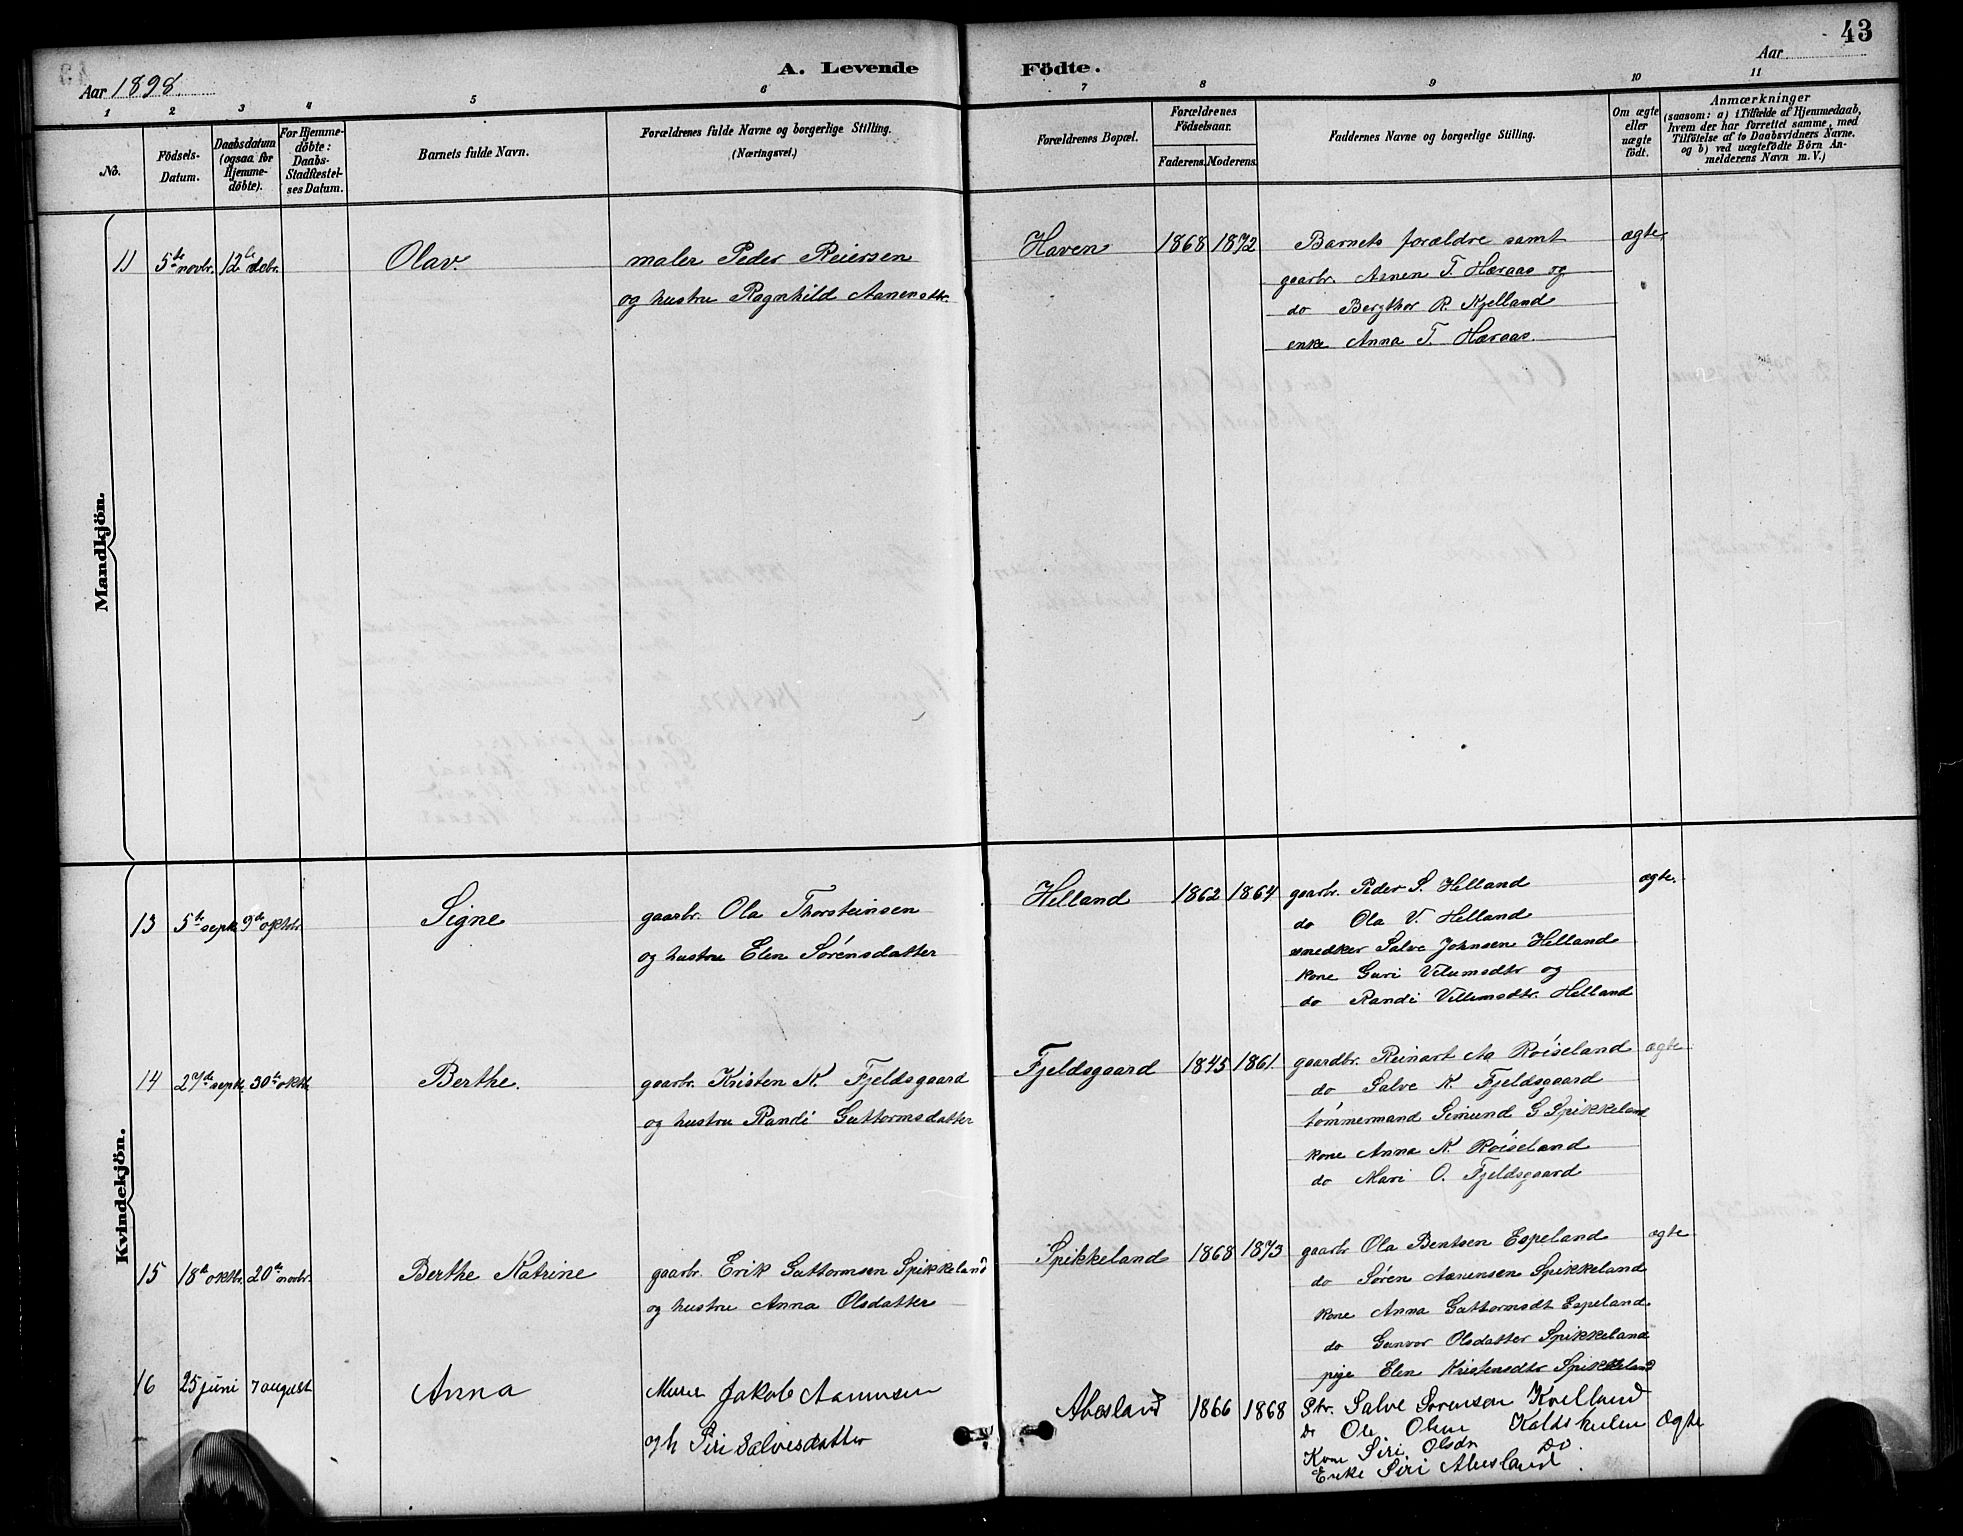 43
Aar 1898.
A. Levende Födte.
Aar
1 2 3 4 5 6 7 8 9 10 11
No.
Födsels-Datum.
Daabsdatum (ogsaa for Hjemme-döbte).
For Hjemme-döbte: Daabs-Stadfæstel-ses Datum.
Barnets fulde Navn.
Forældrenes fulde Navne og borgerlige Stilling. (Næringsvei.)
Forældrenes Bopæl.
Forældrenes Födselsaar.
Faderens. Moderens.
Faddernes Navne og borgerlige Stilling.
Om ægte eller uægte födt.
Anmærkninger
(saasom: a) i Tilfælde af Hjemmedaab,
hvem der har forrettet samme, med
Tilföielse af to Daabsvidners Navne.
og b) ved uægtefödte Börn An-
melderens Navn m. V.)
Mandkjön.
11 5te novbr. 12te debr. Olav. maler Peder Reiersen Haven 1868 1872 Barnets forældre samt ægte
og hustru Ragnhild Aanensdtr. gaarbr. Aanen T. Hæraas og
do Bergthor R. Kjelland
enke Anna T. Hæraas.
Kvindekjön.
13 5te septr. 9de oktbr. Signe gaarbr. Ola Thorsteinsen Helland 1862 1864 gaarbr. Peder S. Helland ægte.
og hustru Elen Sörensdatter do Ola V. Helland
snedker Salve Johnsen Helland
kone Guri Vilumsdtr og
do Randi Villumsdtr. Helland
14 27de septr. 30te oktbr. Berthe. gaarbr. Kristen K. Fjeldsgaard Fjeldsgaard 1845 1861 gaardbr. Reinart Aa Röiseland ægte
og hustru Randi Guttormsdatter do Salve K. Fjeldsgaard
tömmermand Simund G Spikkeland
kone Anna K. Röiseland
do Mari O. Fjeldsgaard
15 18de oktbr. 20te novbr. Berthe Katrine gaarbr. Erik Guttormsen Spikkeland Spikkeland 1868 1873 gaarbr Ola Bentsen Espeland ægte
og hustru Anna Olsdatter do Sören Aanensen Spikkeland
kone Anna Guttormsdt Espeland
do Gunvor Olsdatter Spikkeland
pige Elen Kristensdtr Spikkeland
16 25 juni 7 august Anna Murer Jakob Aanensen Abesland 1866 1868 Gbr. Salve Sörensen Kvelland
og h Siri Salvesdatter Do Ole Olsen Ægte
Kone Siri Olsdr Do
Enke Siri Abesland.